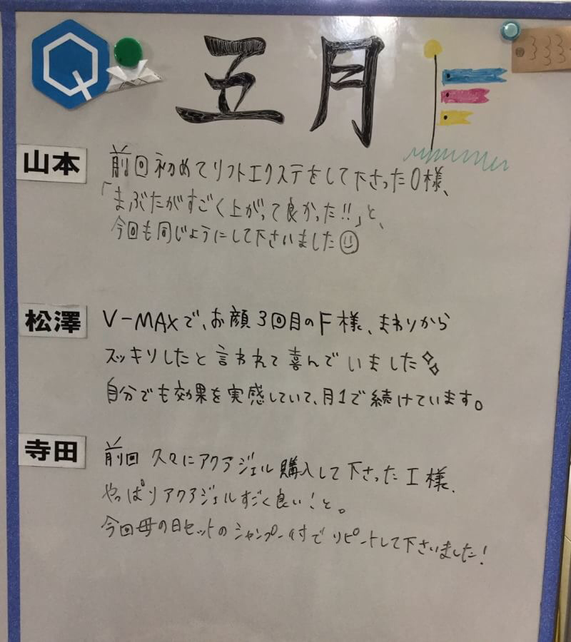 五月
山本
前回初めてリフトエクステをして下さったO様、
「まぶたがすごく上がって良かった!!」と、
今回も同じようにして下さいました
松澤
V-MAXで、お顔3回目のF様、まわりから
スッキリしたと言われて喜んでいました
自分でも効果を実感していて、月1で続けています。
寺田
前回 久々にアクアジェル購入して下さったI様、
やっぱりアクアジェルすごく良い!と。
今回母の日セットのシャンプー付でリピートして下さいました!